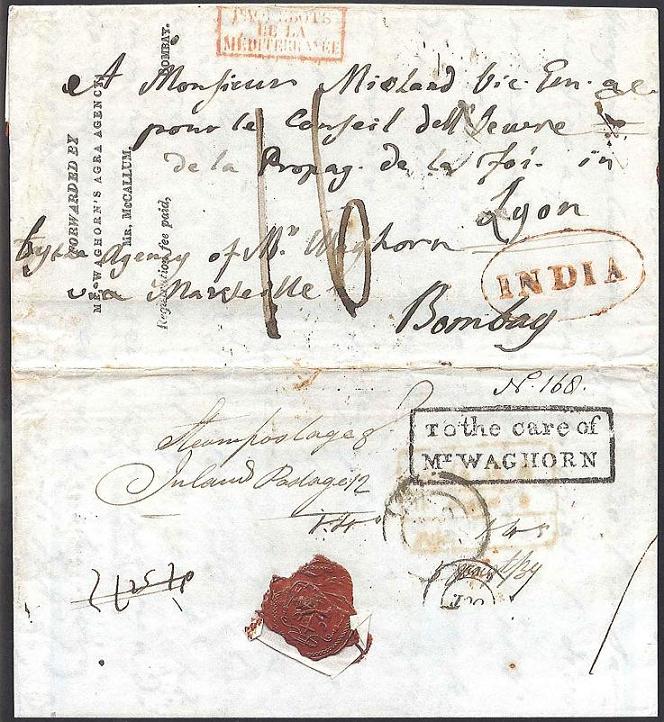 PAQUEBOTS
DE LA
MÉDITERRANÉE
A Monsieur Mioland Vic. Gen.
pour le Conseil dell'Oeuvre
de la Propag. de la Foi. in
Lyon
by the Agency of Mr. Waghorn
via Marseille
Bombay
16
INDIA
FORWARDED BY
MR. WAGHORN'S AGRA AGENCY
MR. McCALLUM,
BOMBAY.
Registration fee paid,
No. 168.
To the care of
Mr WAGHORN
Steam postage 8
Inland Postage 12
LYON